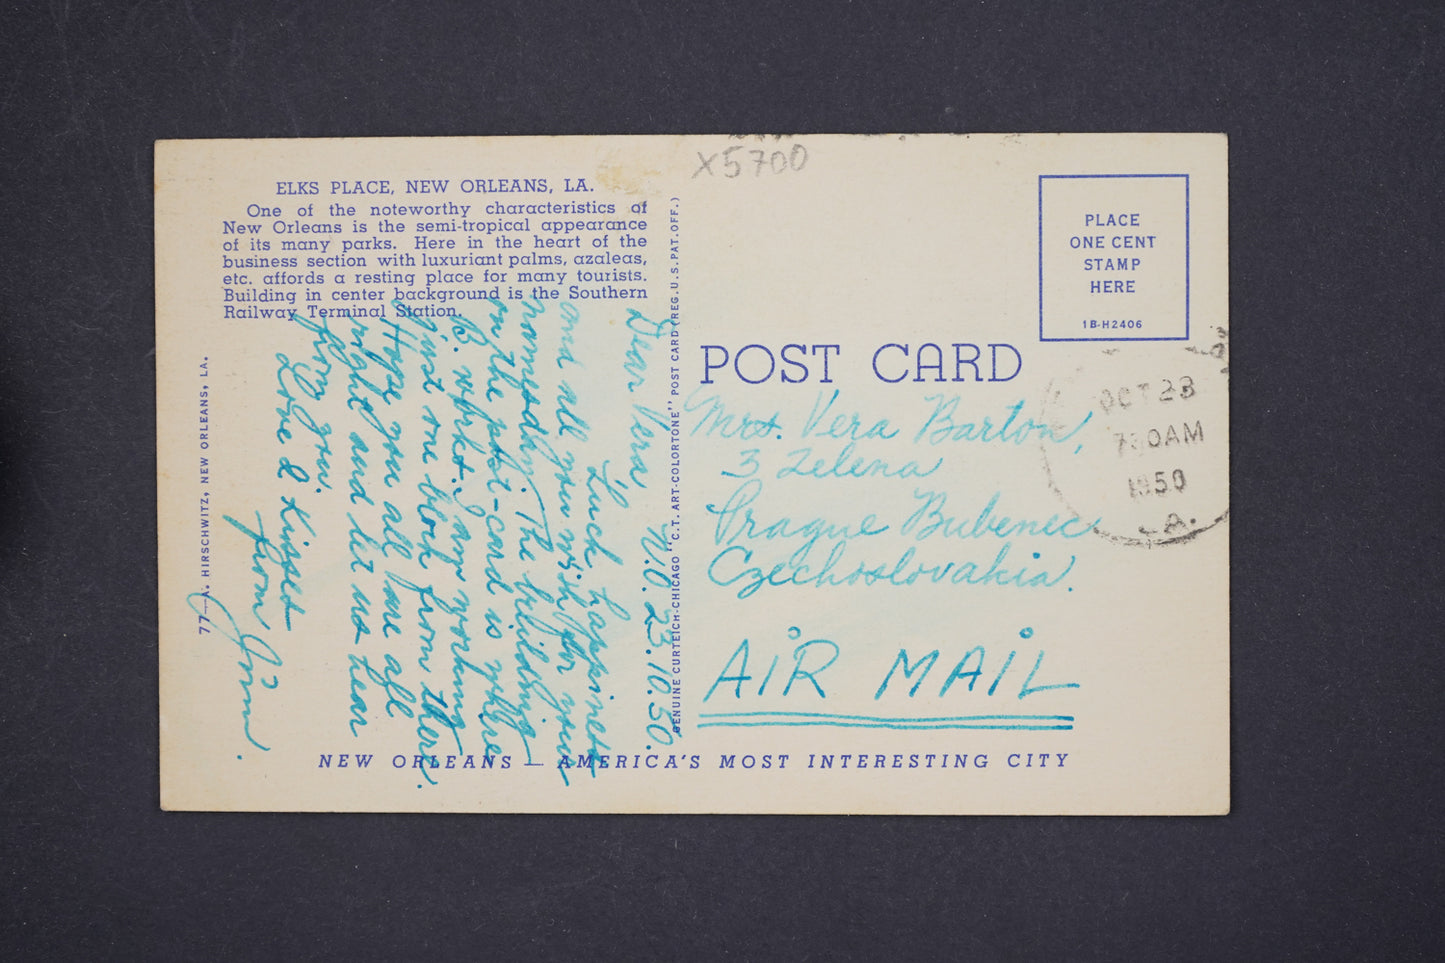 X5700
ELKS PLACE, NEW ORLEANS, LA.
One of the noteworthy characteristics of
New Orleans is the semi-tropical appearance
of its many parks. Here in the heart of the
business section with luxuriant palms, azaleas,
etc. affords a resting place for many tourists.
Building in center background is the Southern
Railway Terminal Station.
77—A. HIRSCHWITZ, NEW ORLEANS, LA.
N.O. 23.10.50.
Dear Vera
Luck happiness
and all you wish for your
namesday. The building
on the post-card is where
B. works. I am working
just one block from there.
Hope you all are all
right and let us hear
from you.
Love & Kisses
from Jim.
GENUINE CURTEICH-CHICAGO "C.T. ART-COLORTONE" POST CARD (REG. U.S. PAT. OFF.)
PLACE
ONE CENT
STAMP
HERE
1B-H2406
POST CARD
OCT 23
7 30 AM
1950
LA.
Mrs. Vera Barton,
3 Zelena
Prague Bubenec
Czechoslovakia.
AIR MAIL
NEW ORLEANS — AMERICA'S MOST INTERESTING CITY